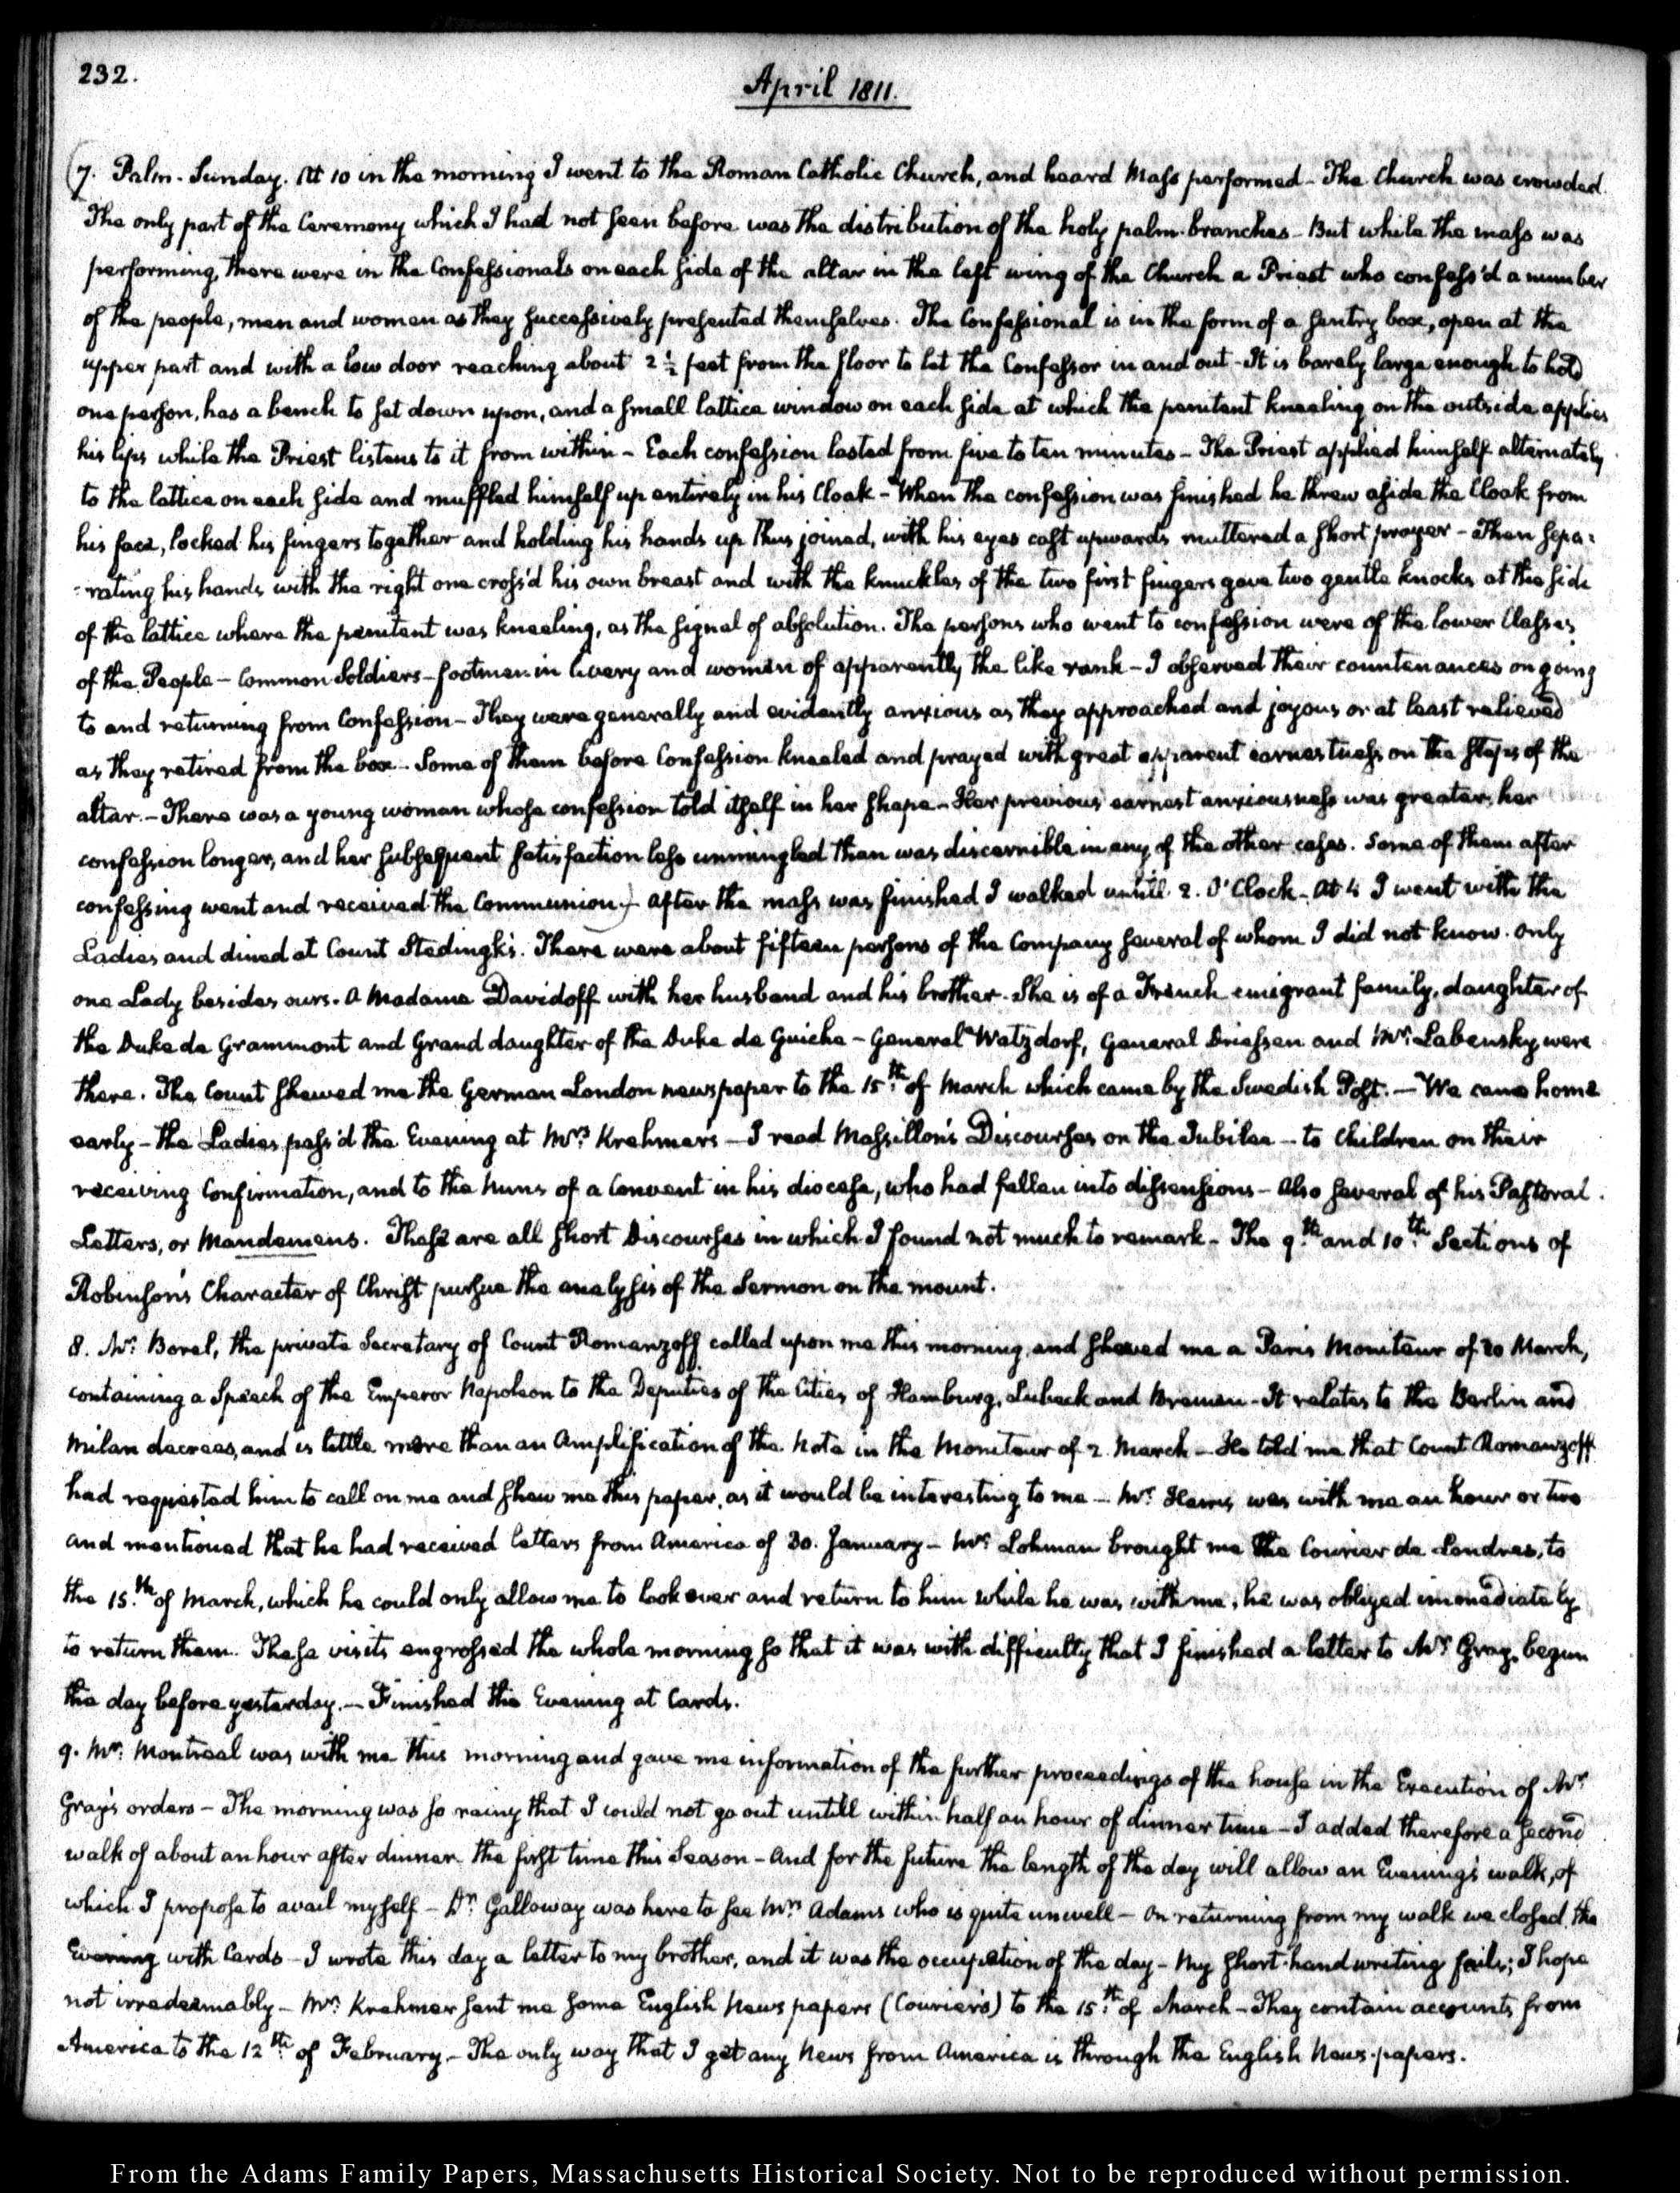 232.
April 1811.
(7. Palm-Sunday. At 10 in the morning I went to the Roman Catholic Church, and heard Mass performed - The Church was crowded.
The only part of the Ceremony which I had not seen before was the distribution of the holy palm-branches - But while the mass was
performing, there were in the Confessionals on each side of the altar in the left wing of the Church a Priest who confess'd a number
of the people, men and women as they successively presented themselves. The Confessional is in the form of a sentry box, open at the
upper part and with a low door reaching about 2½ feet from the floor to let the Confessor in and out - It is barely large enough to hold
one person, has a bench to set down upon, and a small lattice window on each side at which the penitent kneeling on the outside applies
his lips while the Priest listens to it from within - Each confession lasted from five to ten minutes - The Priest applied himself alternately
to the lattice on each side and muffled himself up entirely in his Cloak - When the confession was finished he threw aside the Cloak from
his face, locked his fingers together and holding his hands up thus joined, with his eyes cast upwards muttered a short prayer - Then sepa-
-rating his hands with the right one cross'd his own breast and with the knuckles of the two first fingers gave two gentle knocks at the side
of the lattice where the penitent was kneeling, as the signal of absolution. The persons who went to confession were of the lower Classes
of the People - Common Soldiers - footmen in livery and women of apparently the like rank - I observed their countenances on going
to and returning from Confession - They were generally and evidently anxious as they approached and joyous or at least relieved
as they retired from the box - Some of them before Confession kneeled and prayed with great apparent earnestness on the steps of the
altar. - There was a young woman whose confession told itself in her shape - Her previous earnest anxiousness was greater, her
confession longer, and her subsequent satisfaction less unmingled than was discernible in any of the other cases. Some of them after
confessing went and received the Communion -) After the mass was finished I walked untill 2. O'Clock - At 4 I went with the
Ladies and dined at Count Stedingk's. There were about fifteen persons of the Company several of whom I did not know. Only
one Lady besides ours. A Madame Davidoff with her husband and his brother. She is of a French emigrant family, daughter of
the Duke de Grammont and Grand daughter of the Duke de Guiche - General Watzdorf, General Driessen and Mr. Labensky were
there. The Count shewed me the German London newspaper to the 15th. of March which came by the Swedish Post. - We came home
early - the Ladies pass'd the Evening at Mrs. Krehmer's - I read Massillon's Discourses on the Jubilee - to Children on their
receiving Confirmation, and to the Nuns of a Convent in his diocese, who had fallen into dissensions - Also several of his Pastoral
Letters, or Mandemens. These are all short Discourses in which I found not much to remark - The 9th. and 10th. Sections of
Robinson's Character of Christ pursue the analysis of the Sermon on the mount.
8. Mr. Borel, the private Secretary of Count Romanzoff called upon me this morning, and shewed me a Paris Moniteur of 20 March,
containing a Speech of the Emperor Napoleon to the Deputies of the Cities of Hamburg, Lubeck and Bremen - It relates to the Berlin and
Milan decrees, and is little more than an Amplification of the Note in the Moniteur of 2. March - He told me that Count Romanzoff
had requested him to call on me and shew me this paper, as it would be interesting to me - Mr. Harris was with me an hour or two
and mentioned that he had received letters from America of 30. January - Mr. Lohman brought me the Courier de Londres, to
the 15th. of March, which he could only allow me to look over and return to him while he was with me, he was obliged immediately
to return them. These visits engrossed the whole morning so that it was with difficulty that I finished a letter to Mr. Gray, begun
the day before yesterday. - Finished the Evening at Cards.
9. Mr. Montreal was with me this morning and gave me information of the further proceedings of the house in the Execution of Mr.
Gray's orders - The morning was so rainy that I could not go out untill within half an hour of dinner time - I added therefore a second
walk of about an hour after dinner the first time this Season - And for the future the length of the day will allow an Evening's walk, of
which I propose to avail myself - Dr. Galloway was here to see Mrs. Adams who is quite unwell - On returning from my walk we closed the
Evening with Cards - I wrote this day a letter to my brother, and it was the occupation of the day - My short-hand writing fails; I hope
not irredeemably - Mrs. Krehmer sent me some English News papers (Couriers) to the 15th. of March - They contain accounts from
America to the 12th. of February. - The only way that I get any News from America is through the English News-papers.
From the Adams Family Papers, Massachusetts Historical Society. Not to be reproduced without permission.